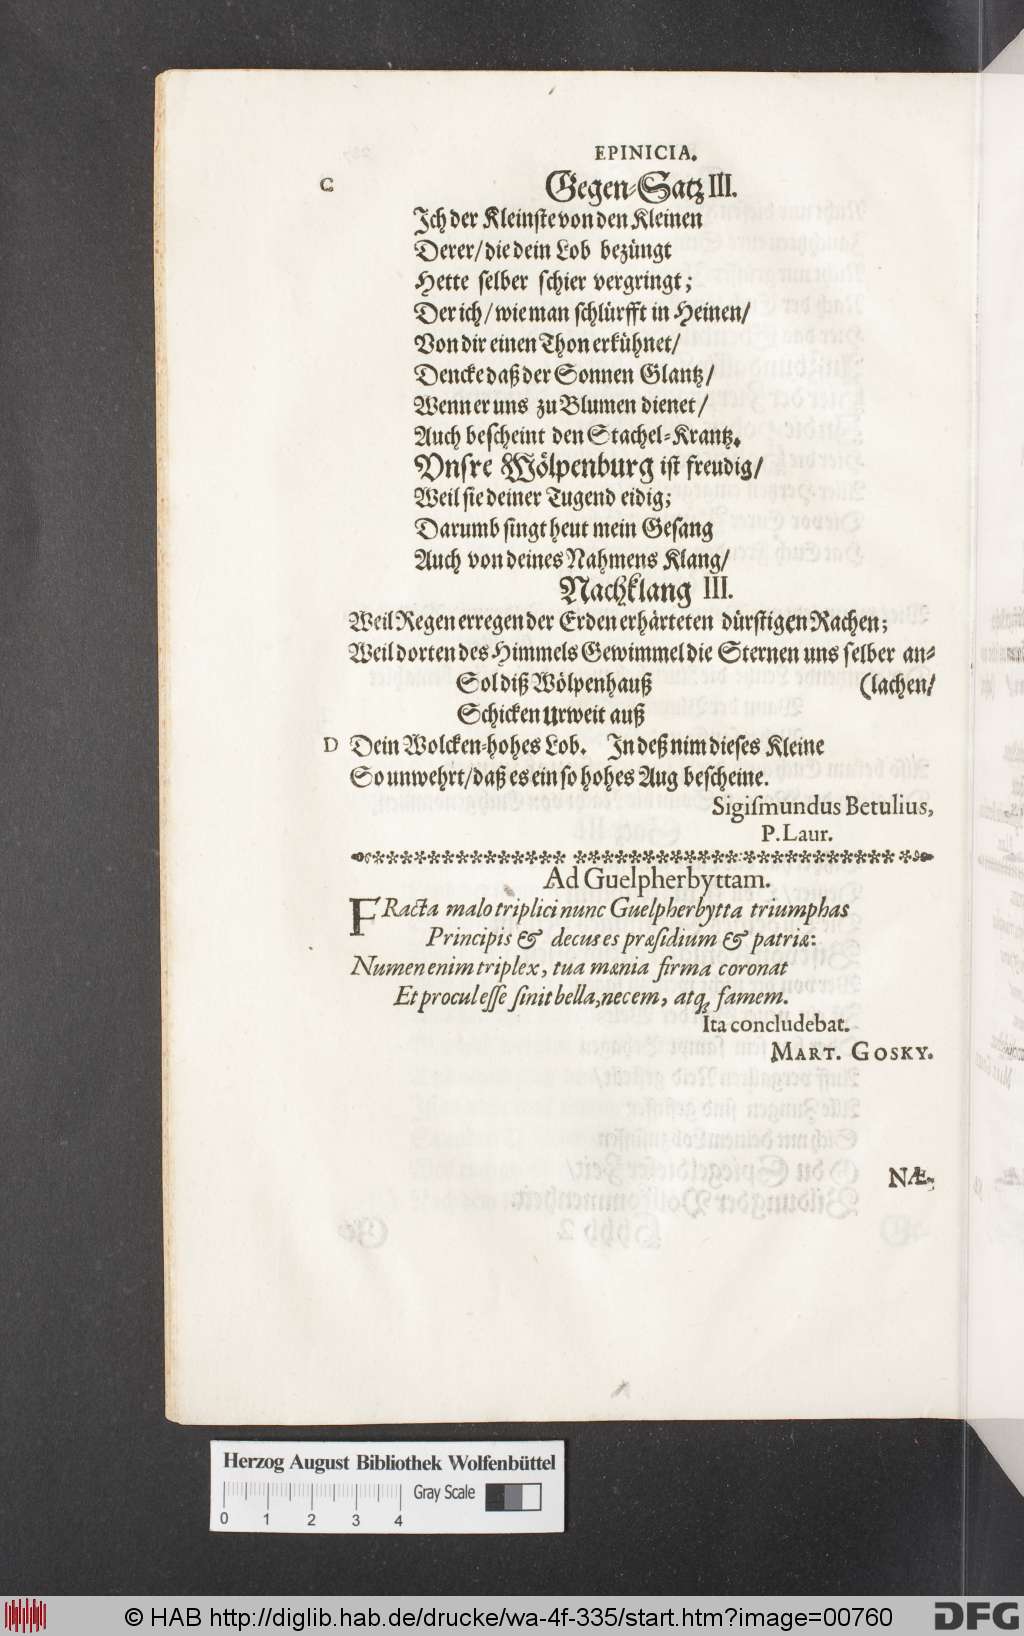 EPINICIA.
C
Gegen-Satz III.
Ich der Kleinste von den Kleinen
Derer/ die dein Lob bezüngt
Hette selber schier vergringt;
Der ich/ wie man schlürfft in Heinen/
Von dir einen Thon erkühnet/
Dencke daß der Sonnen Glantz/
Wenn er uns zu Blumen dienet/
Auch bescheint den Stachel-Krantz.
Vnsre Wölpenburg ist freudig/
Weil sie deiner Tugend eidig;
Darumb singt heut mein Gesang
Auch von deines Nahmens Klang/
Nachklang III.
Weil Regen erregen der Erden erhärteten dürstigen Rachen;
Weil dorten des Himmels Gewimmel die Sternen uns selber an-
Sol diß Wölpenhauß (lachen/
Schicken Urweit auß
D Dein Wolcken-hohes Lob. In deß nim dieses Kleine
So unwehrt/ daß es ein so hohes Aug bescheine.
Sigiſmundus Betulius,
P. Laur.
Ad Guelpherbyttam.
FRacta malo triplici nunc Guelpherbytta triumphas
Principis & decus es præſidium & patriæ:
Numen enim triplex, tua mænia firma coronat
Et procul eſſe ſinit bella, necem, atq; famem.
Ita concludebat.
MART. GOSKY.
NÆ-
Herzog August Bibliothek Wolfenbüttel
Gray Scale
0 1 2 3 4
© HAB http://diglib.hab.de/drucke/wa-4f-335/start.htm?image=00760
DFG